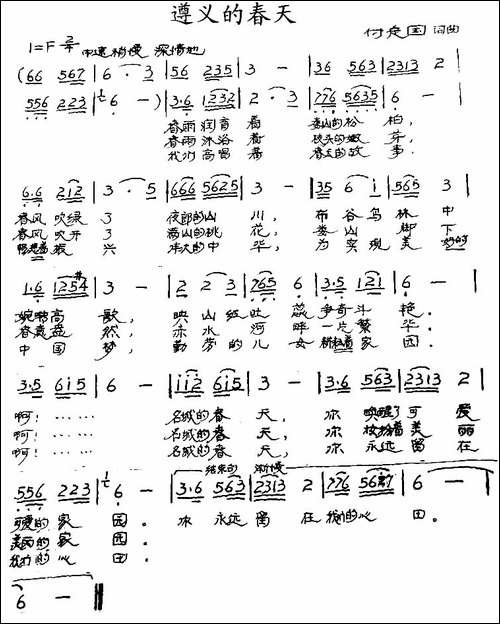 遵义的春天
1=F 2/4 中速稍慢 深情地 付定国 词曲
(66 567 | 6 · 3 | 56 235 | 3 - | 36 563 | 2313 2 |
556 223 | 6 - ) | 3·6 1232 | 2 · 3 | 776 5635 | 6 - |
春雨润育着 娄山的松柏,
春雨沐浴着 枝头的嫩芽,
我们高唱着 春天的故事.
6·6 212 | 3 · 5 | 666 5625 | 3 - | 35 6 i | 565 3 |
春风吹绿了 夜郎的山川, 布谷鸟林中
春风吹开了 满山的桃花, 娄山脚下
振兴 伟大的中华, 为实现美好的
1·6 1254 | 3 - | 2 2 3 | 765 6 | 3·5 121 | 6 - |
婉转高歌, 映山红吐蕊争奇斗艳.
春意盎然, 赤水河畔一片繁华.
中国梦, 勤劳的儿女 家园.
3·5 615 | 6 - | 112 615 | 3 - | 3·6 563 | 2313 2 |
啊! …… 名城的春天, 你唤醒了可爱
啊! …… 名城的春天, 你妆扮着美丽
啊! …… 名城的春天, 你永远留在
结束句 渐慢
556 223 | 6 - | 3·6 563 | 2313 2 | 776 567 | 6 - |
可爱的家园. 你永远留在我们的心田.
美丽的家园.
我们的心田.
6 - ‖